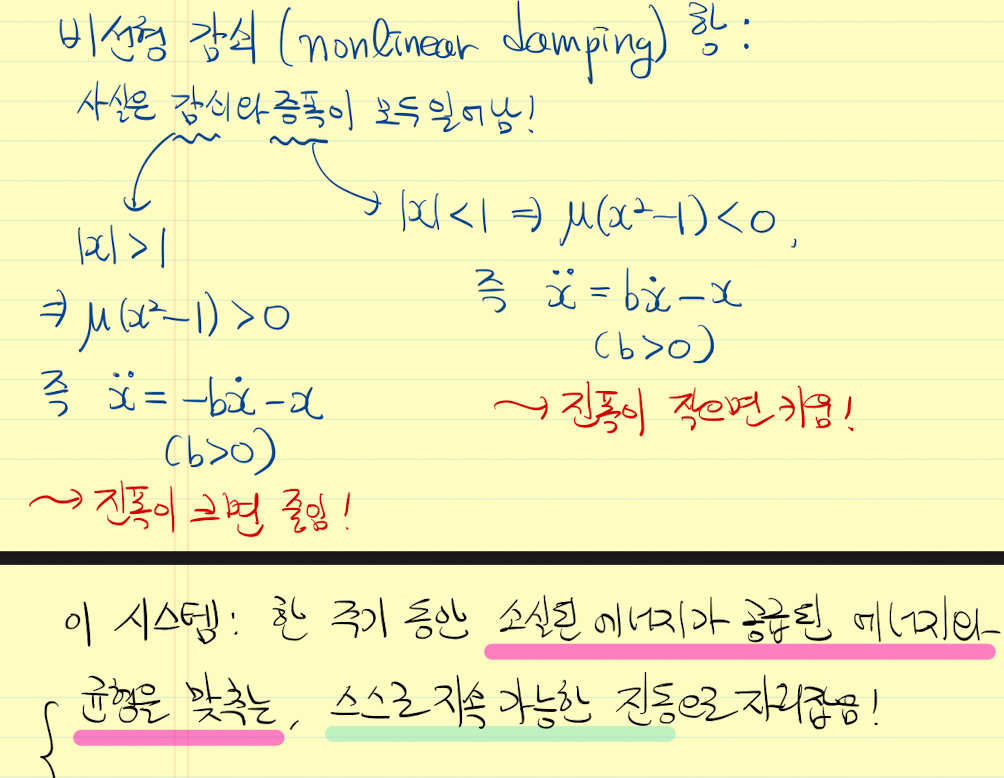 비선형 감쇠 (nonlinear damping) 항 :
사실은 감쇠와 증폭이 모두 일어남!
|x| > 1
⇒ μ(x²-1) > 0
즉 ẍ = -bẋ - x
(b>0)
~> 진폭이 크면 줄임!
|x| < 1 ⇒ μ(x²-1) < 0,
즉 ẍ = bẋ - x
(b>0)
~> 진폭이 작으면 키움!
이 시스템: 한 주기 동안 소실된 에너지가 공급된 에너지와
균형을 맞추는, 스스로 지속 가능한 진동으로 자리잡음!